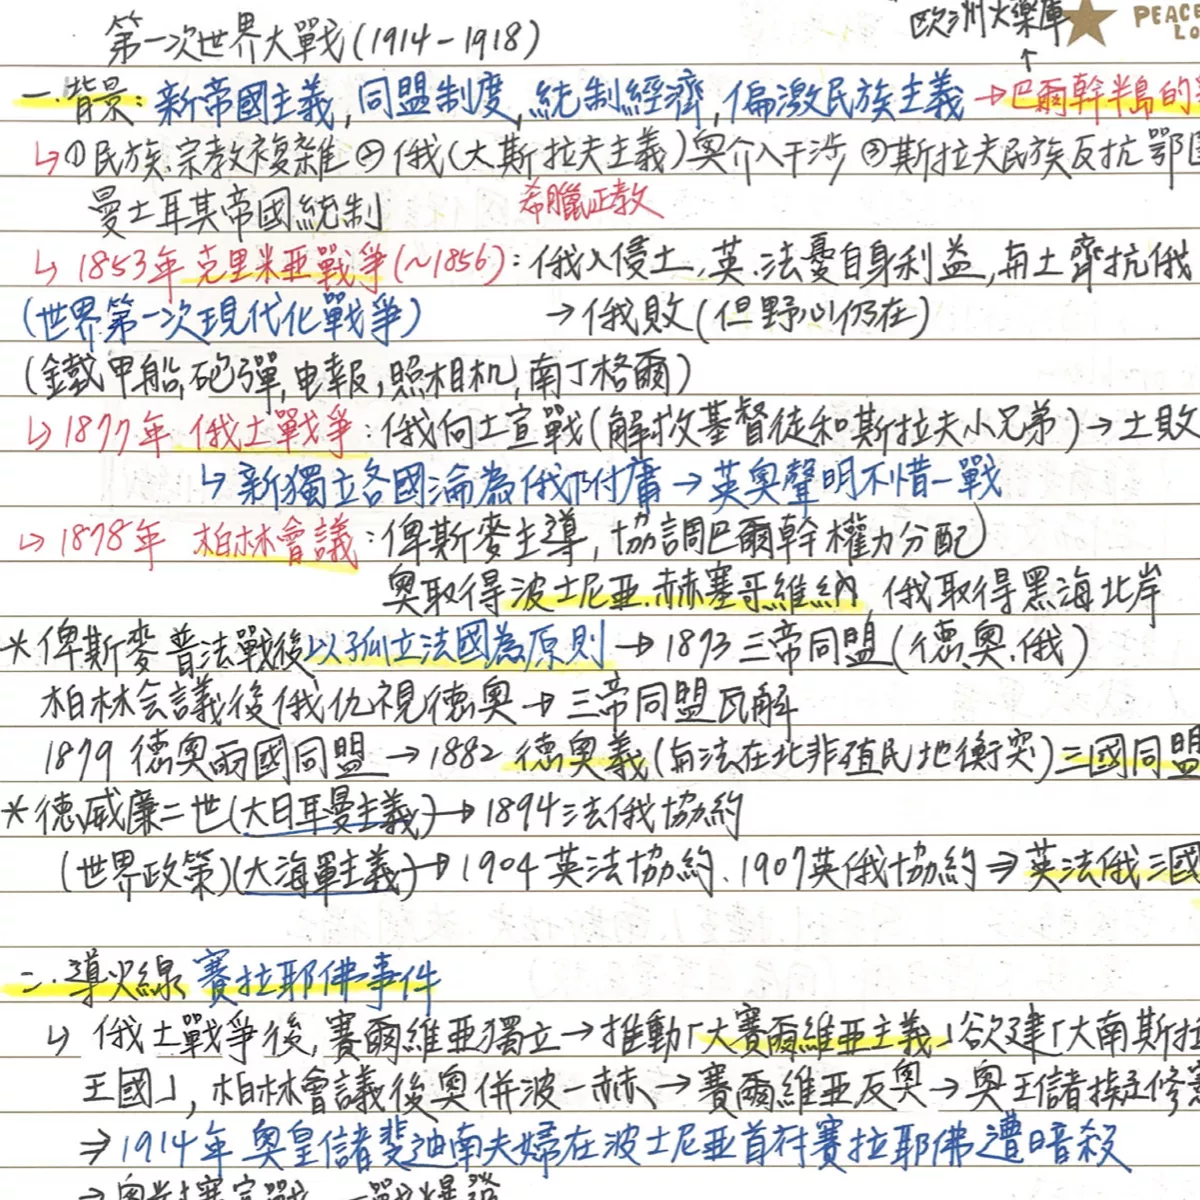 第一次世界大戰(1914-1918)
歐洲火藥庫
PEACE
LO
↑
一.背景:新帝國主義,同盟制度,統制經濟,偏激民族主義→巴爾幹半島的
↳①民族.宗教複雜 ②俄(大斯拉夫主義)奧介入干涉 ③斯拉夫民族反抗鄂圖
希臘正教
曼土耳其帝國統制
↳1853年 克里米亞戰爭(~1856):俄入侵土,英.法憂自身利益,與土齊抗俄
(世界第一次現代化戰爭) →俄敗(但野心仍在)
(鐵甲船,砲彈,电報,照相机,南丁格爾)
↳1877年 俄土戰爭:俄向土宣戰(解放基督徒和斯拉夫小兄弟)→土敗
↳新獨立各國淪為俄附庸→英奧聲明不惜一戰
↳1878年 柏林會議:俾斯麥主導,協調巴爾幹權力分配
奧取得波士尼亞.赫塞哥維納,俄取得黑海北岸
*俾斯麥普法戰後以孤立法國為原則→1873三帝同盟(德.奧.俄)
柏林会議後俄仇視德奧→三帝同盟瓦解
1879 德奧兩國同盟→1882 德奧義(與法在北非殖民地衝突)三國同盟
*德威廉二世(大日耳曼主義)→1894法俄協約
(世界政策)(大海軍主義)→1904英法協約.1907英俄協約⇒英法俄三國
二.導火線 賽拉耶佛事件
↳俄土戰爭後,賽爾維亞獨立→推動「大賽爾維亞主義」欲建「大南斯拉
王國」,柏林會議後奧併波-赫→賽爾維亞反奧→奧王儲擬修
⇒1914年 奧皇儲斐迪南夫婦在波士尼亞首府賽拉耶佛遭暗殺
→奧對塞宣戰,一戰爆發